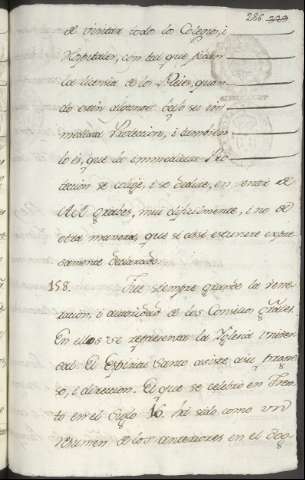 286
de visitar todo lo Colegios, i
Hospitales, con tal que pidan
la licencia de los Reies, quan
do están algunos bajo su in
mediata Proteccion, i tambien
lo es, que la inmediata Pro
teccion se colije, i se deduce, en
mui dificilmente, i no de
otra manera, que si asi estuviere expre
samente declarado.
158. Fue siempre grande la vene
racion, i autoridad de los Concilios Grales.
En ellos se representa la Iglesia Univer
sal. El Espiritu Santo asiste a su
i direccion. El que se celebró en Tren
to en el Siglo 16. há sido como un
resumen de los antecedentes en el Dog